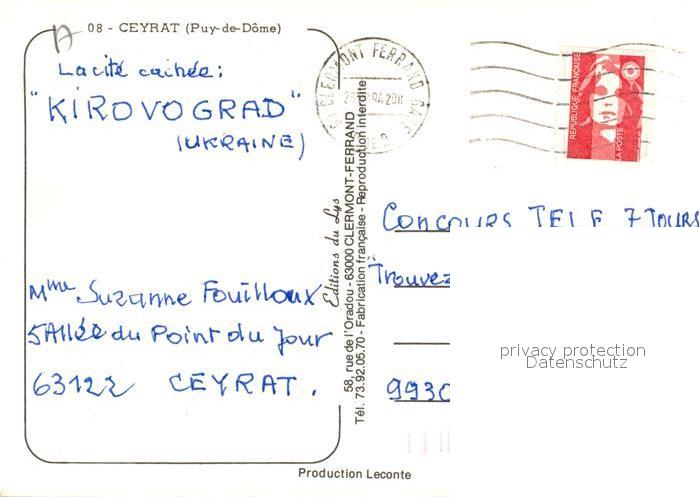 08 - CEYRAT (Puy-de-Dôme)
La cité cachée :
"KIROVOGRAD"
(UKRAINE)
Mme Suzanne Fouilloux
5 Allée du Point du Jour
63122 CEYRAT.
Editions du Lys
58, rue de l'Oradou - 63000 CLERMONT-FERRAND
Tél. 73.92.05.70 - Fabrication française - Reproduction interdite
CLERMONT FERRAND GARE
REPUBLIQUE FRANÇAISE
LA POSTE
CONCOURS TELE 7 JOURS
"Trouvez
9930
privacy protection
Datenschutz
Production Leconte